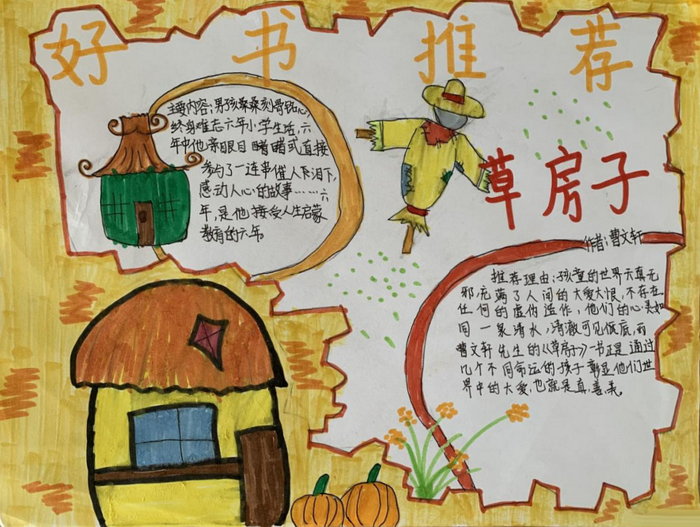 好书推荐
主要内容：男孩桑桑刻骨铭心，
终身难忘六年小学生活，六
年中他亲眼目睹睹或直接
参与了一连串催人下泪下，
感动人心的故事……六
年，是他接受人生启蒙
教育的六年
草房子
作者：曹文轩
推荐理由：孩童的世界天真无
邪，充满了人间的大爱大恨，不存在
任何的虚伪造作，他们的心灵如
同一泉清水，清澈可见低底，而
曹文轩先生的《草房子》一书正是通过
几个不同命运的孩子彰显他们世
界中的大爱，也就是真、善、美。